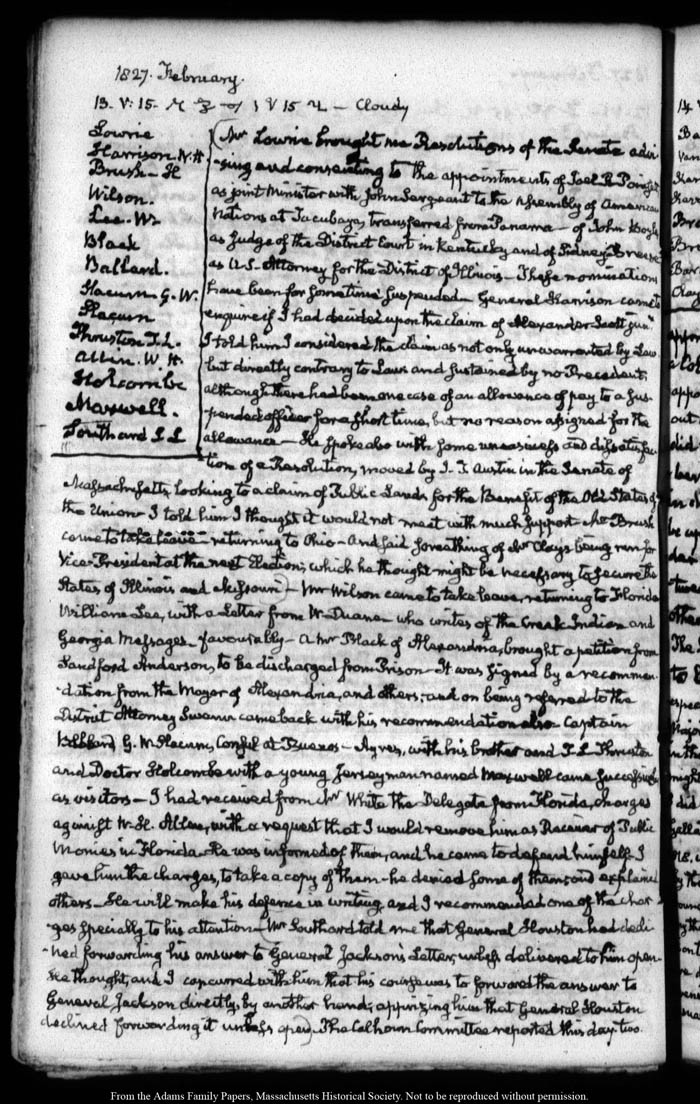 1827. February.
13. V: 15. V 15 — Cloudy
Lowrie
Harrison. W. H.
Brush — H
Wilson.
Lee. W.
Black
Ballard.
Slacum. G. W.
Slacum
Thruston T. L.
Allen. W. H.
Holcombe
Maxwell.
Southard S L
Mr Lowrie brought me Resolutions of the Senate advi-
-sing and consenting to the appointments of Joel R Poinsett
as joint Minister with John Sergeant to the Assembly of American
Nations at Tacubaya, transferred from Panama — of John Boyle
as Judge of the District Court in Kentucky and of Sidney Breese
as U.S. Attorney for the District of Illinois — These nominations
have been for sometime suspended — General Harrison came to
enquire if I had decided upon the claim of Alexander Scott junr
I told him I considered the claim as not only unwarranted by Law
but directly contrary to Law and sustained by no Precedent;
although there had been one case of an allowance of pay to a sus-
-pended officer for a short time, but no reason assigned for the
allowance — He spoke also with some uneasiness and dissatisfac-
-tion of a Resolution, moved by J. T. Austin in the Senate of
Massachusetts, looking to a claim of Public Lands for the Benefit of the Old States of
the Union — I told him I thought it would not meet with much support — Mr Brush
came to take leave — returning to Ohio — And said something of Mr Clay's being run for
Vice-President at the next Election; which he thought might be necessary to secure the
States of Illinois and Missouri) — Mr Wilson came to take leave, returning to Florida
William Lee, with a Letter from W. Duane who writes of the Creek Indian and
Georgia Messages — favourably — A Mr Black of Alexandria, brought a petition from
Sandford Anderson, to be discharged from Prison — It was signed by a recommen-
-dation from the Mayor of Alexandria, and others; and on being referred to the
District Attorney Swann came back with his recommendation also — Captain
Ballard G. W. Slacum, Consul at Buenos-Ayres, with his brother and T. L. Thruston
and Doctor Holcombe with a young Jerseyman named Maxwell came successively
as visitors — I had received from Mr White the Delegate from Florida, charges
against W. H. Allen, with a request that I would remove him as Receiver of Public
Monies in Florida. He was informed of them, and he came to defend himself — I
gave him the charges, to take a copy of them — he denied some of them, and explained
others — He will make his defence in writing, and I recommended one of the char-
-ges specially to his attention — Mr Southard told me that General Houston had decli-
-ned forwarding his answer to General Jackson's Letter, unless delivered to him open —
He thought, and I concurred with him that his course was to forward the answer to
General Jackson directly, by another hand; apprizing him that General Houston
declined forwarding it unless open). The Calhoun Committee reported this day two
From the Adams Family Papers, Massachusetts Historical Society. Not to be reproduced without permission.